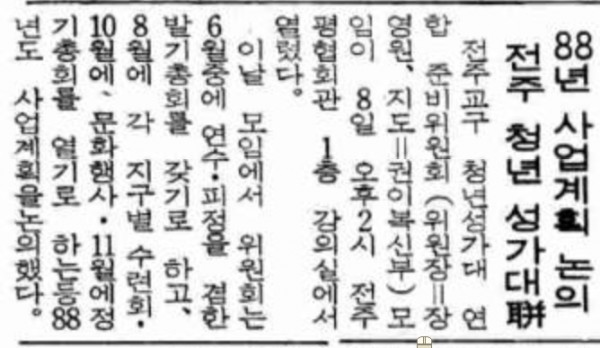 88년 사업계획 논의
전주 청년 성가대聯
전주교구 청년성가대 연
합 준비위원회(위원장=장
영원、지도=권이복신부) 모
임이 8일 오후2시 전주
평협회관 1층 강의실에서
열렸다。
이날 모임에서 위원회는
6월중에 연수·피정을 겸한
발기총회를 갖기로 하고、
8월에 각 지구별 수련회·
10월에、문화행사·11월에정
기총회를 열기로 하는등88
년도 사업계획을논의했다。